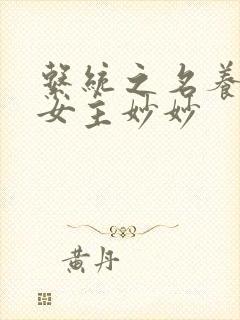 繫統之名養
女主妙妙
黃丹